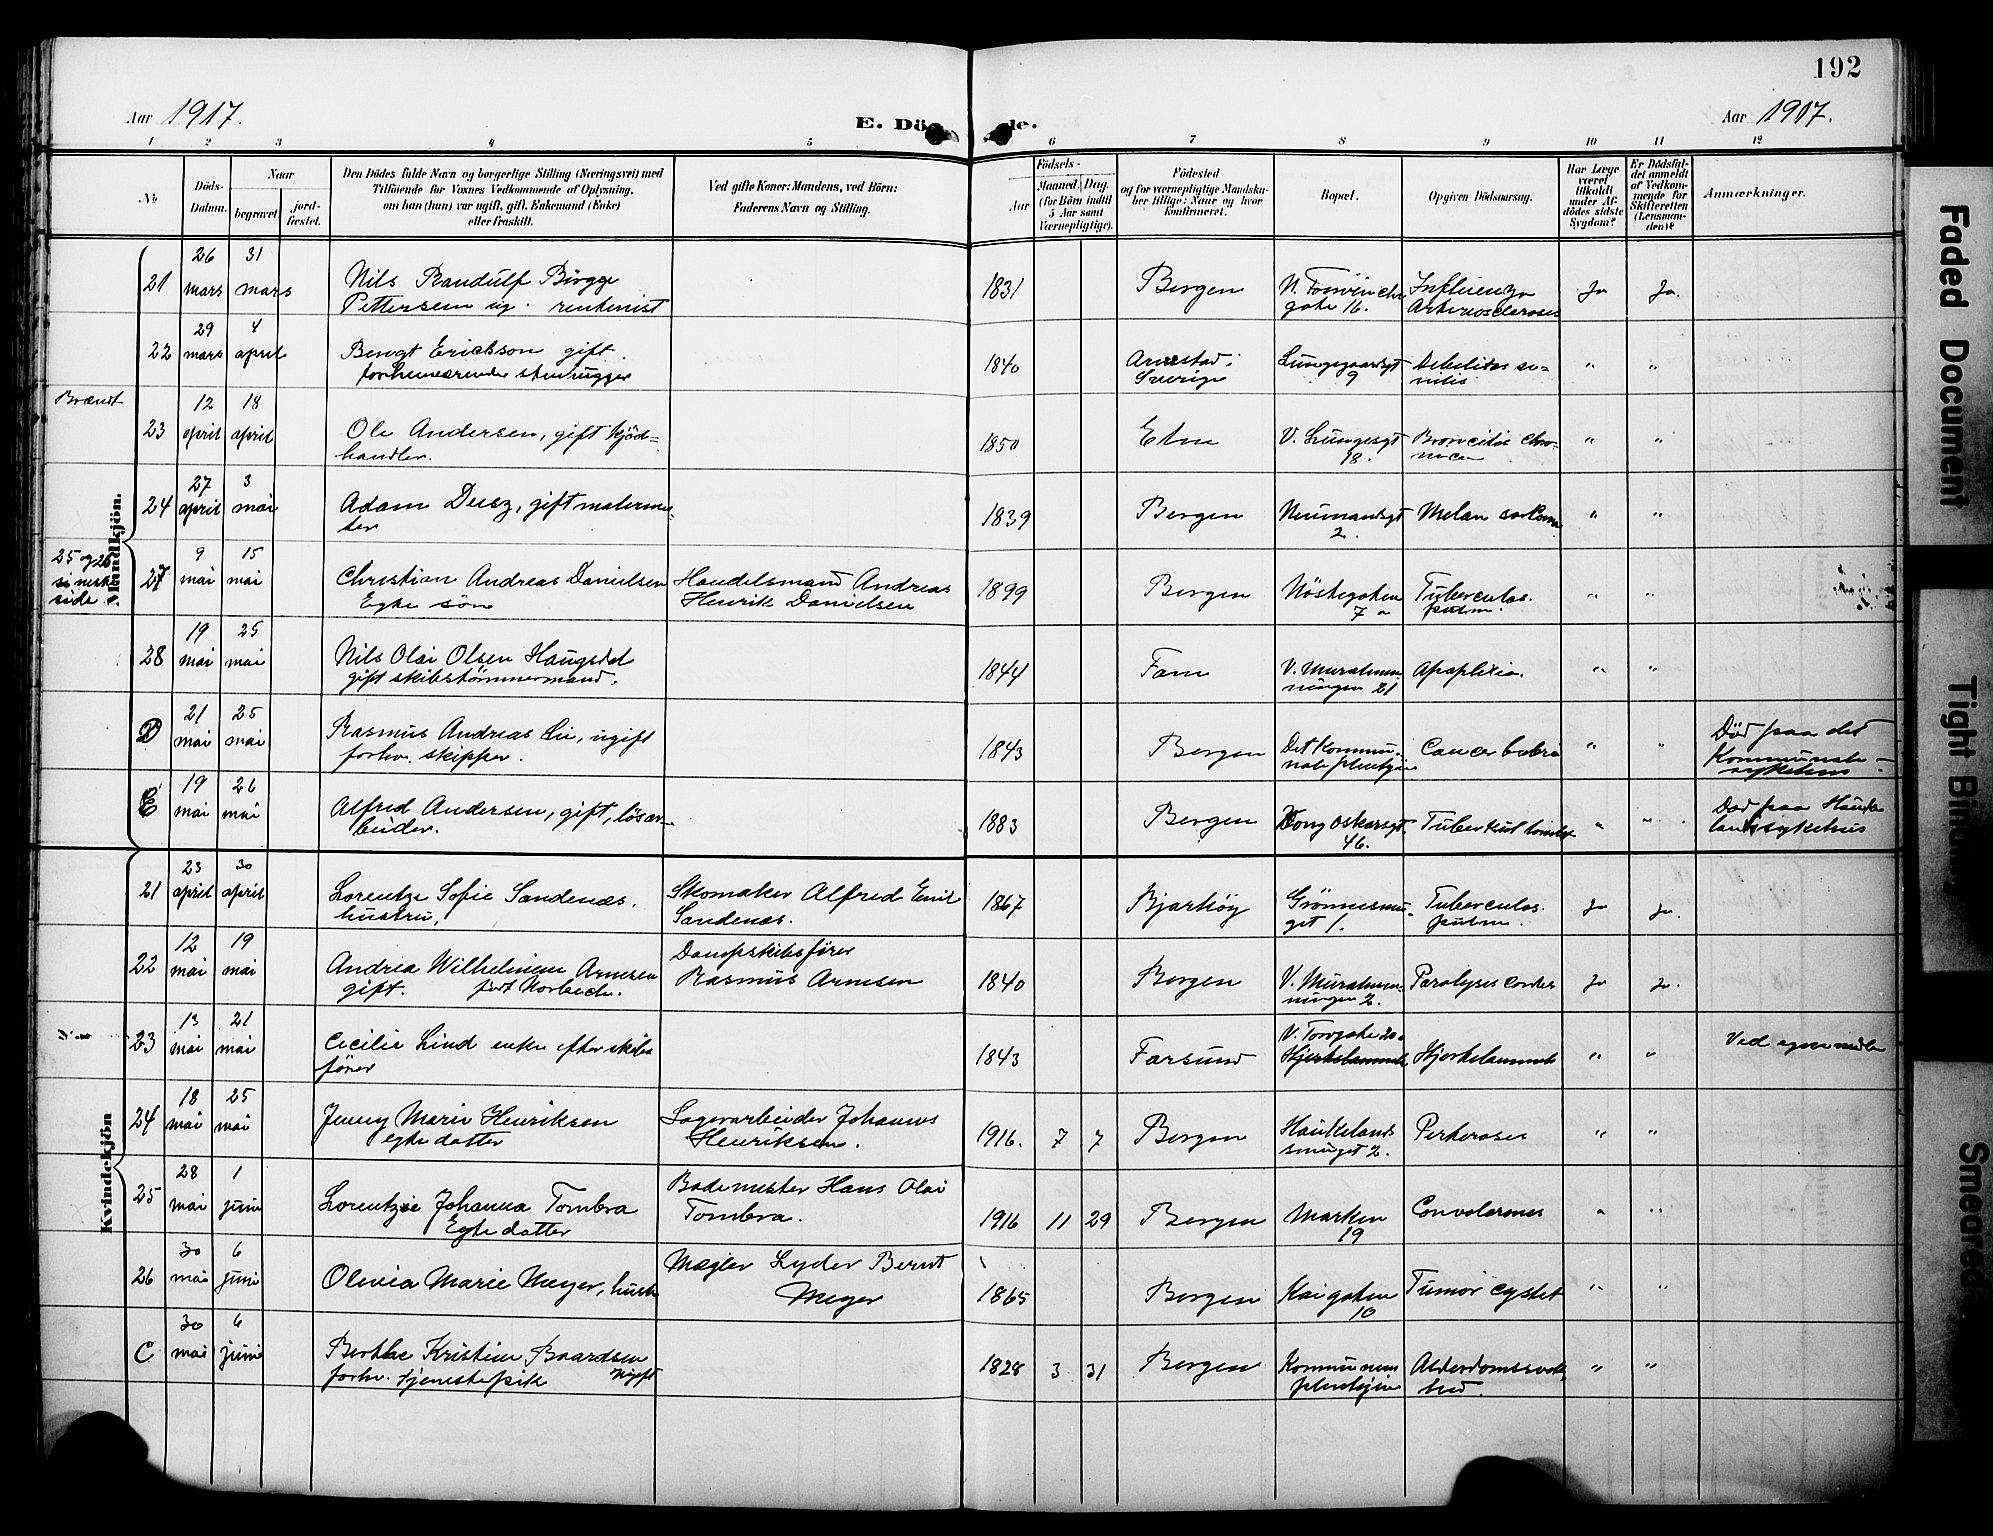 192
Aar 1917.
E. Dö de.
Aar 1917.
1 2 3 4 5 6 7 8 9 10 11 12
No.
Döds-Datum.
Naar
begravet.
jord-fæstet.
Den Dödes fulde Navn og borgerlige Stilling (Næringsvei) med
Tilföiende for Voxnes Vedkommende af Oplysning,
om han (hun) var ugift, gift, Enkemand (Enke)
eller fraskilt.
Ved gifte Koner: Mandens, ved Börn:
Faderens Navn og Stilling.
Födsels-
Aar
Maaned. Dag.
(for Börn indtil
5 Aar samt
Værnepligtige).
Födested
og for værnepligtige Mandska-
ber tillige: Naar og hvor
konfirmeret.
Bopæl.
Opgiven Dödsaarsag.
Har Læge
været
tilkaldt
under Af-
dödes sidste
Sygdom?
Er Dödsfal-
det anmeldt
af Vedkom-
mende for
Skifteretten
(Lensman-
den)?
Anmærkninger.
Mandkjön.
21 26 mars 31 mars Nils Randulf Birger
Pettersen ug. rentenist 1831 Bergen gate 16. Influenza
Arteriosclerosis Ja Ja.
22 29 mars 4 april Bengt Ericsson gift.
forhenværende stenhugger 1840 i Sverige Lungegaardsgt
9 Debilitas se-
nilis " "
Brændt
23 12 april 18 april Ole Andersen, gift kjöd-
handler. 1850 Etne V. Lungesgt
18. Broncitis chro-
nica " "
24 27 april 3 mai Adam Deisz, gift malermes-
ter 1839 Bergen Neumannsgt
2. Melan sarkom " "
25 og 26
si næste
side.
27 9 mai 15 mai Christian Andreas Danielsen
Egte sön Handelsmand Andreas
Henrik Danielsen 1899 Bergen Nöstegaten
7 a Tuberculos.
pulm. " "
28 19 mai 25 mai Nils Olai Olsen Haugsdal
gift skibstömmermand. 1844 Fane V. Muralmen-
ningen 21 Apoplexia. " "
D 21 mai 25 mai Rasmus Andreas Lie, ugift
forhv. skipper. 1843 Bergen Det Kommu-
nale pleiehjem Cancer " " Död paa det
Kommunale
sykehus.
E 19 mai 26 mai Alfred Andersen, gift, lösar-
beider. 1883 Bergen Kong Oskarsgt.
46. " " Död paa Hauke
landssykehus
Kvindekjön
21 23 april 30 april Lorentze Sofie Sandenæs.
hustru. Skomaker Alfred Emil
Sandenæs. 1867 Bjarköy Grönnesmu-
get 1. Tuberculos.
pulm. Ja Ja.
22 12 mai 19 mai Andrea Wilhelmine Arnesen
gift. föt Norbeck. Dampskibsförer
Rasmus Arnesen 1840 Bergen V. Muralmen-
ningen 2. Paralysis cordis Ja Ja.
23 13 mai 21 mai Cecilie Lind enke efter skibs
förer 1843 Farsund V. Torvgate 20a
Hjertelammelse Hjertelammelse " " Ved egne midler
24 18 mai 25 mai Jenny Marie Henriksen
egte datter Lagerarbeider Johannes
Henriksen. 1916. 7 7 Bergen Haukelands
smuget 2. " "
25 28 mai 1 juni Lorentze Johanna Tombra
Egte datter Bademester Hans Olai
Tombra. 1916 11 29 Bergen Marken
19 " "
26 30 mai 6 juni Olivia Marie Meyer, hustr. Mægler Lyder Bernt
Meyer 1865 Bergen Kaigaten
10 Tumor " "
C 30 mai 6 juni Kristine Baardsen
forhv. tjenestepike ugift 1828 3 31 Bergen Kommunens
pleiehjem Alderdomssvak
hed. " "
Faded Document
Tight Binding
Smeared